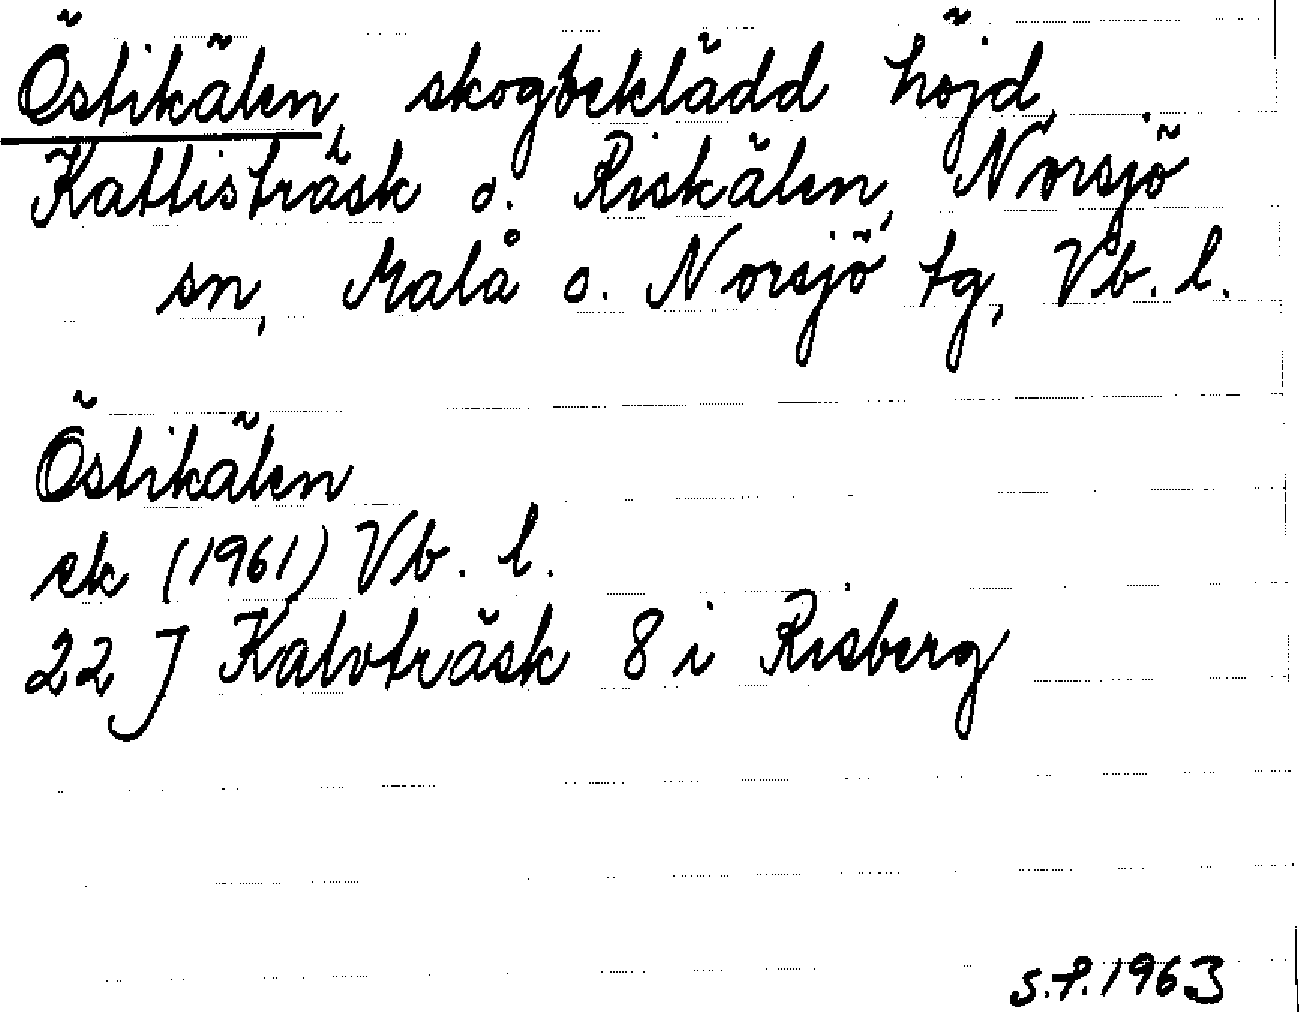 Östikälen, skogbeklädd höjd,
Kattisträsk o. Riskälen, Norsjö
sn, Malå o. Norsjö tg, Vb. l.
Östikälen
ek (1961) Vb. l.
22 J Kalvträsk 8 i Risberg
S.P. 1963